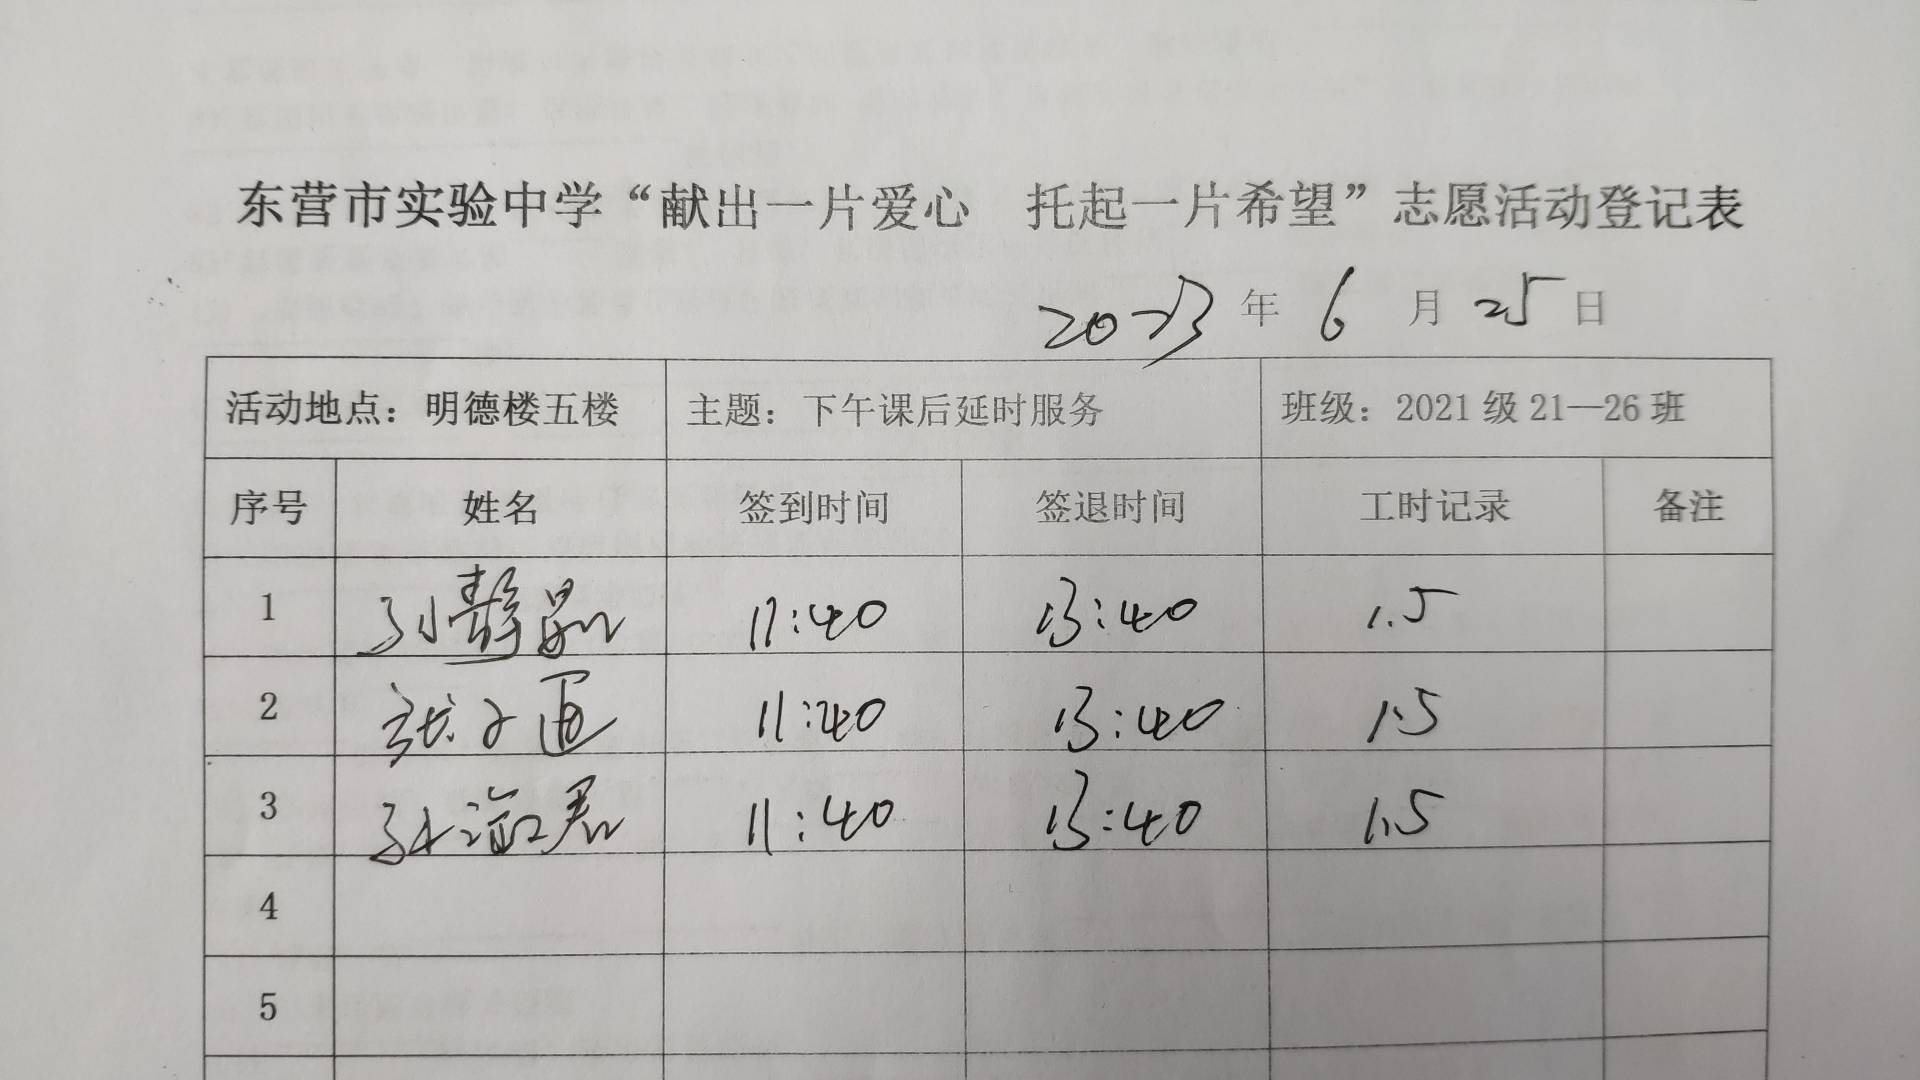 东营市实验中学“献出一片爱心 托起一片希望”志愿活动登记表
2023 年 6 月 25 日
活动地点：明德楼五楼 主题：下午课后延时服务 班级：2021 级 21—26 班
序号 姓名 签到时间 签退时间 工时记录 备注
1 11:40 13:40 1.5
2 11:40 13:40 1.5
3 11:40 13:40 1.5
4
5